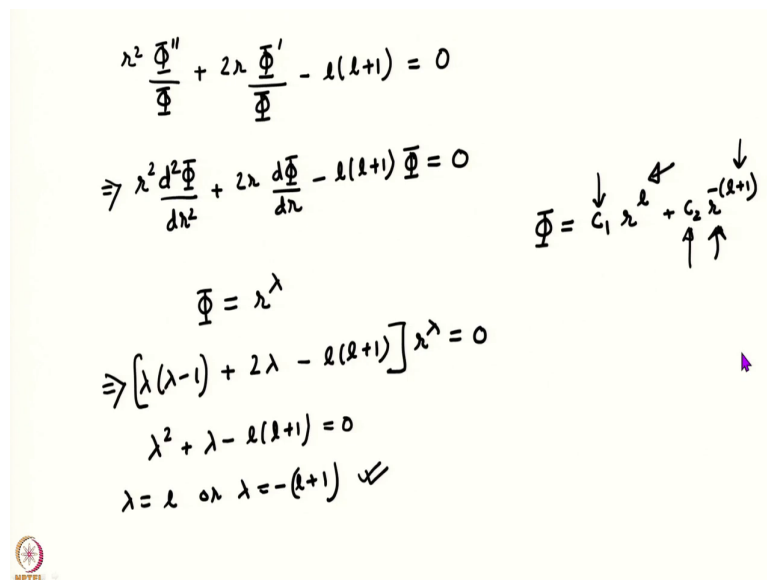 r² Φ''/Φ + 2r Φ'/Φ - l(l+1) = 0
⇒ r² d²Φ/dr² + 2r dΦ/dr - l(l+1) Φ = 0
Φ = c₁ r^l + c₂ r^-(l+1)
Φ = r^λ
⇒ [λ(λ-1) + 2λ - l(l+1)] r^λ = 0
λ² + λ - l(l+1) = 0
λ = l or λ = -(l+1)
NPTEL